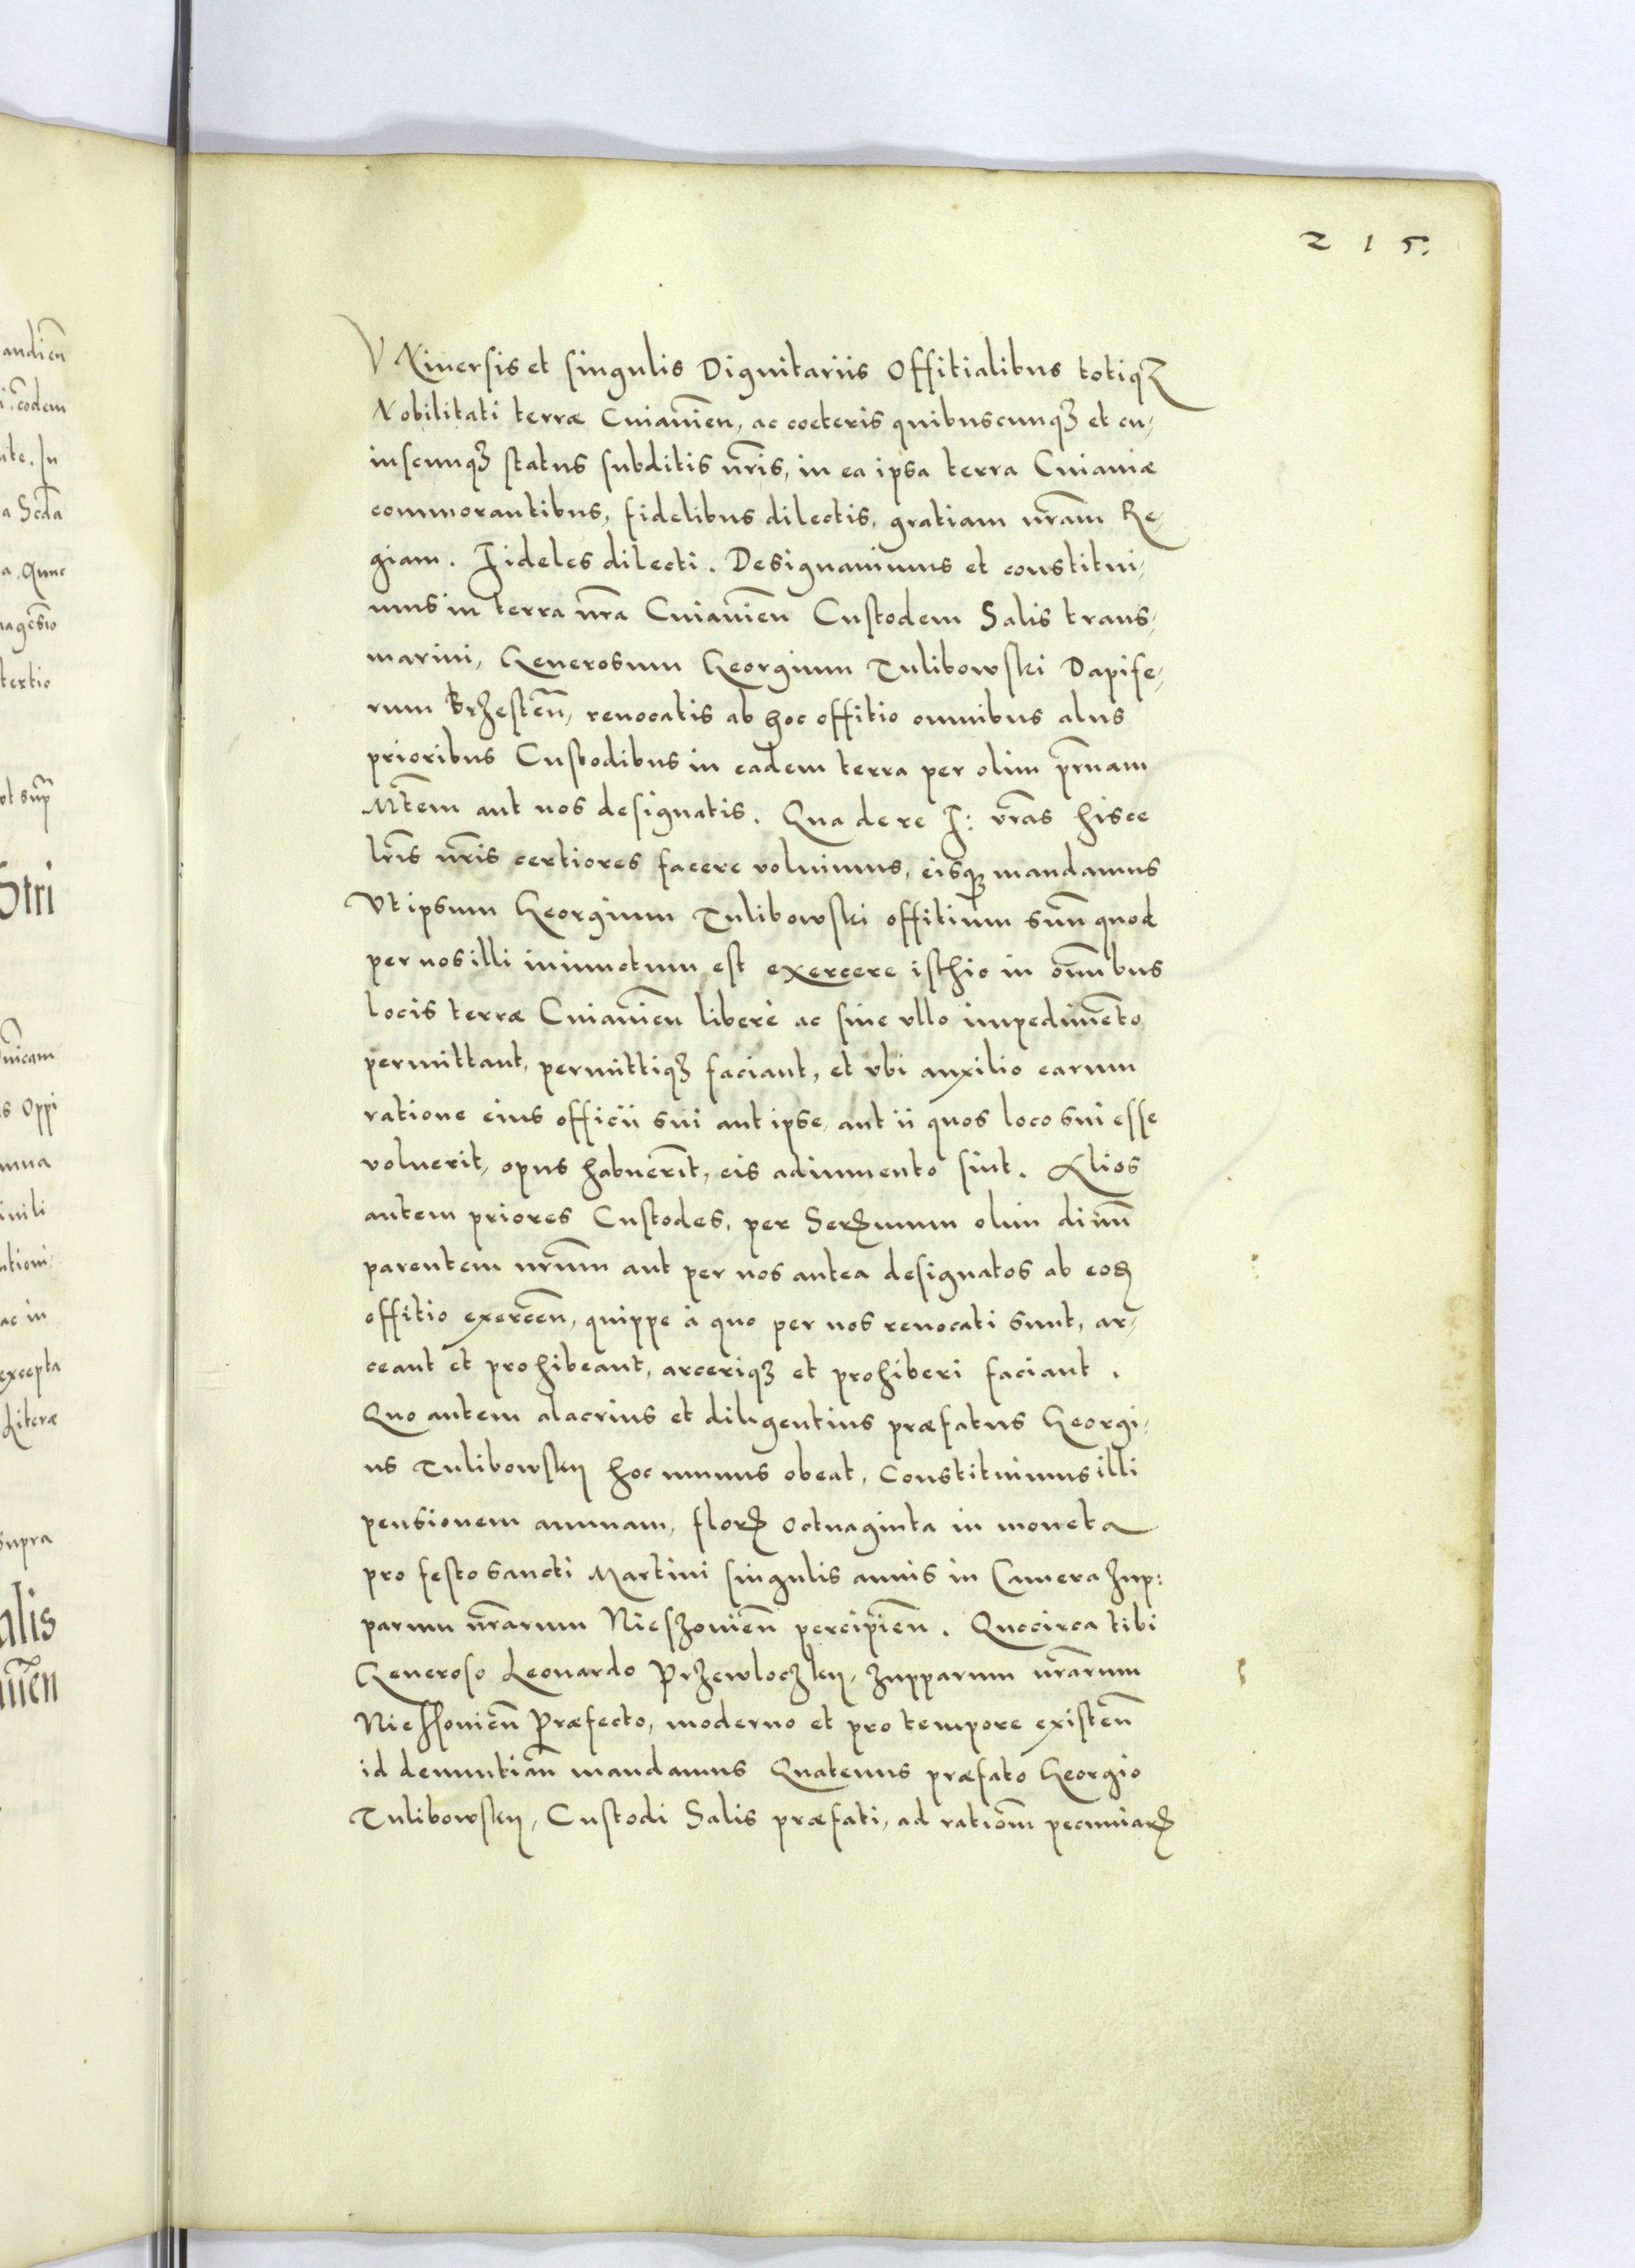 215.
VNiuersis et singulis Dignitariis Offitialibus totiqȝ
Nobilitati terræ Cuiauien̄, ac cœteris quibuscunqȝ et cu-
iuscunqȝ status subditis nr̄is, in ea ipsa terra Cuiauiæ
commorantibus, fidelibus dilectis, gratiam nr̄am Re-
giam. Fideles dilecti. Designauimus et constitui-
mus in terra nr̄a Cuiauien̄ Custodem Salis trans-
marini, Generosum Georgium Tulibowski Dapife-
rum Brzesten̄, reuocatis ab hoc offitio omnibus aliis
prioribus Custodibus in eadem terra per olim pr̄nam
Mt̄em aut nos designatis. Qua de re F: vr̄as hisce
lr̄is nr̄is certiores facere voluimus, eisqȝ mandamus
Vt ipsum Georgium Tulibowski offitium suū quod
per nos illi iniunctum est exercere isthic in om̄ibus
locis terræ Cuiauien̄ liberè ac sine vllo impedimēto
permittant, permittiqȝ faciant, et vbi auxilio earum
ratione eius officii sui aut ipse, aut ii quos loco sui esse
voluerit, opus habuerīt, eis adiumento sint. Alios
autem priores Custodes, per Serꝫmum olim diuū
parentem nr̄um aut per nos antea designatos ab eoꝫ
offitio exercen̄, quippe à quo per nos reuocati sunt, ar-
ceant et prohibeant, arceriqȝ et prohiberi faciant.
Quo autem alacrius et diligentius præfatus Georgi-
us Tulibowsky hoc munus obeat, Constituimus illi
pensionem annuam, florꝫ octuaginta in moneta
pro festo sancti Martini singulis annis in Camera Zup:
parum nr̄arum Nieszouien̄ percipien̄. Quocirca tibi
Generoso Leonardo Przewloczky, Zupparum nr̄arum
Niessouien̄ Præfecto, moderno et pro tempore existen̄
id denuntian̄ mandamus Quatenus præfato Georgio
Tulibowsky, Custodi Salis præfati, ad ration̄m pecuniarꝫ